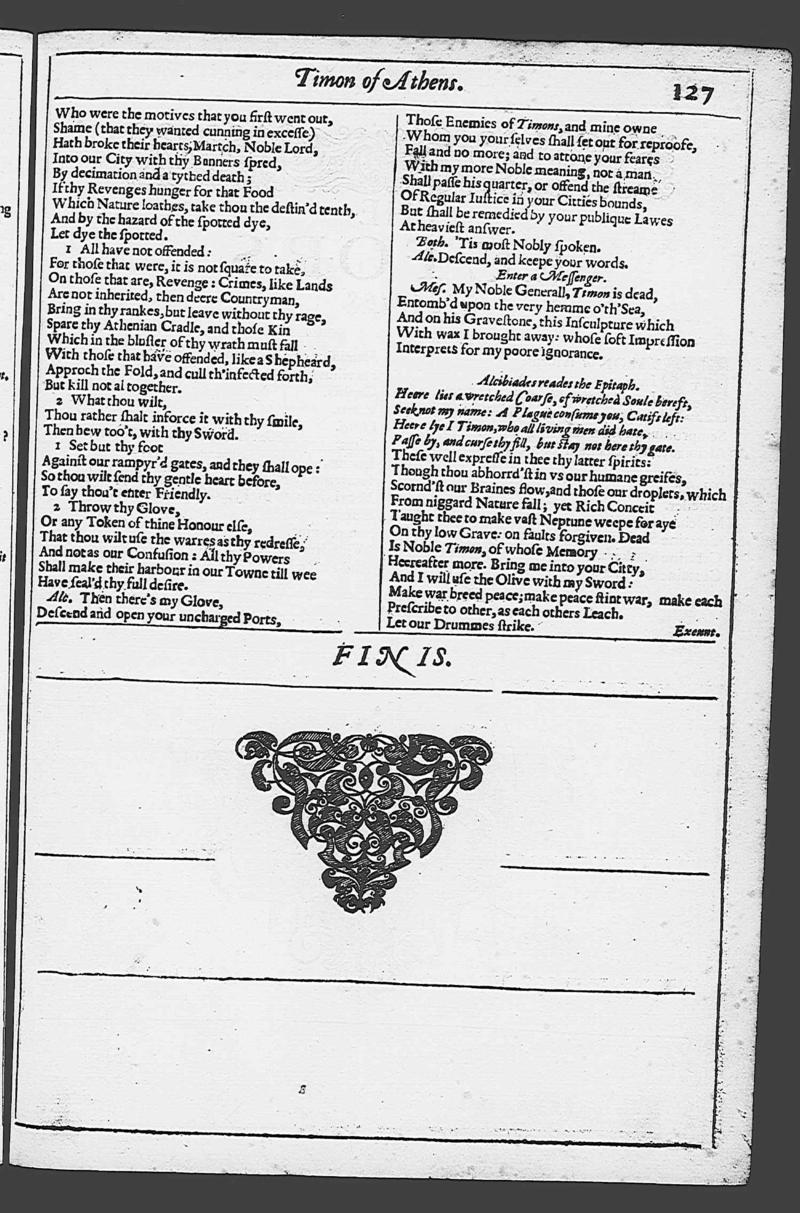 Timon of Athens.
127
Who were the motives that you firſt went out,
Shame (that they wanted cunning in exceſſe)
Hath broke their hearts, March, Noble Lord,
Into our City with thy Banners ſpred,
By decimation and a tythed death;
If thy Revenges hunger for that Food
Which Nature loathes, take thou the deſtin'd tenth,
And by the hazard of the ſpotted dye,
Let dye the ſpotted.
1 All have not offended:
For thoſe that were, it is not ſquare to take,
On thoſe that are, Revenge: Crimes, like Lands
Are not inherited, then deere Countryman,
Bring in thy rankes, but leave without thy rage,
Spare thy Athenian Cradle, and thoſe Kin
Which in the bluſter of thy wrath muſt fall
With thoſe that have offended, like a Shepheard,
Approch the Fold, and cull th'infected forth,
But kill not al together.
2 What thou wilt,
Thou rather ſhalt inforce it with thy ſmile,
Then hew too't, with thy Sword.
1 Set but thy foot
Againſt our rampyr'd gates, and they ſhall ope:
So thou wilt ſend thy gentle heart before,
To ſay thou't enter Friendly.
2 Throw thy Glove,
Or any Token of thine Honour elſe,
That thou wilt uſe the warres as thy redreſſe,
And not as our Confuſion: All thy Powers
Shall make their harbour in our Towne till wee
Have ſeal'd thy full deſire.
Alc. Then there's my Glove,
Deſcend and open your uncharged Ports,
Thoſe Enemies of Timons, and mine owne
Whom you your ſelves ſhall ſet out for reproofe,
Fall and no more; and to attone your feares
With my more Noble meaning, not a man
Shall paſſe his quarter, or offend the ſtreame
Of Regular Iuſtice in your Citties bounds,
But ſhall be remedied by your publique Lawes
At heavieſt anſwer.
Both. 'Tis moſt Nobly ſpoken.
Alc. Deſcend, and keepe your words.
Enter a Meſſenger.
Meſ. My Noble Generall, Timon is dead,
Entomb'd upon the very hemme o'th'Sea,
And on his Graveſtone, this Inſculpture which
With wax I brought away: whoſe ſoft Impreſſion
Interprets for my poore ignorance.
Alcibiades reades the Epitaph.
Heere lies a wretched Coarſe, of wretched Soule bereft,
Seek not my name: A Plague conſume you, Catifs left:
Heere lye I Timon, who all living men did hate,
Paſſe by, and curſe thy fill, but ſtay not here thy gate.
Theſe well expreſſe in thee thy latter ſpirits:
Though thou abhorrd'ſt in vs our humane greifes,
Scornd'ſt our Braines flow, and thoſe our droplets, which
From niggard Nature fall; yet Rich Conceit
Taught thee to make vaſt Neptune weepe for aye
On thy low Grave: on faults forgiven. Dead
Is Noble Timon, of whoſe Memory
Heereafter more. Bring me into your Citty,
And I will uſe the Olive with my Sword:
Make war breed peace; make peace ſtint war, make each
Preſcribe to other, as each others Leach.
Let our Drummes ſtrike. Exeunt.
FINIS.